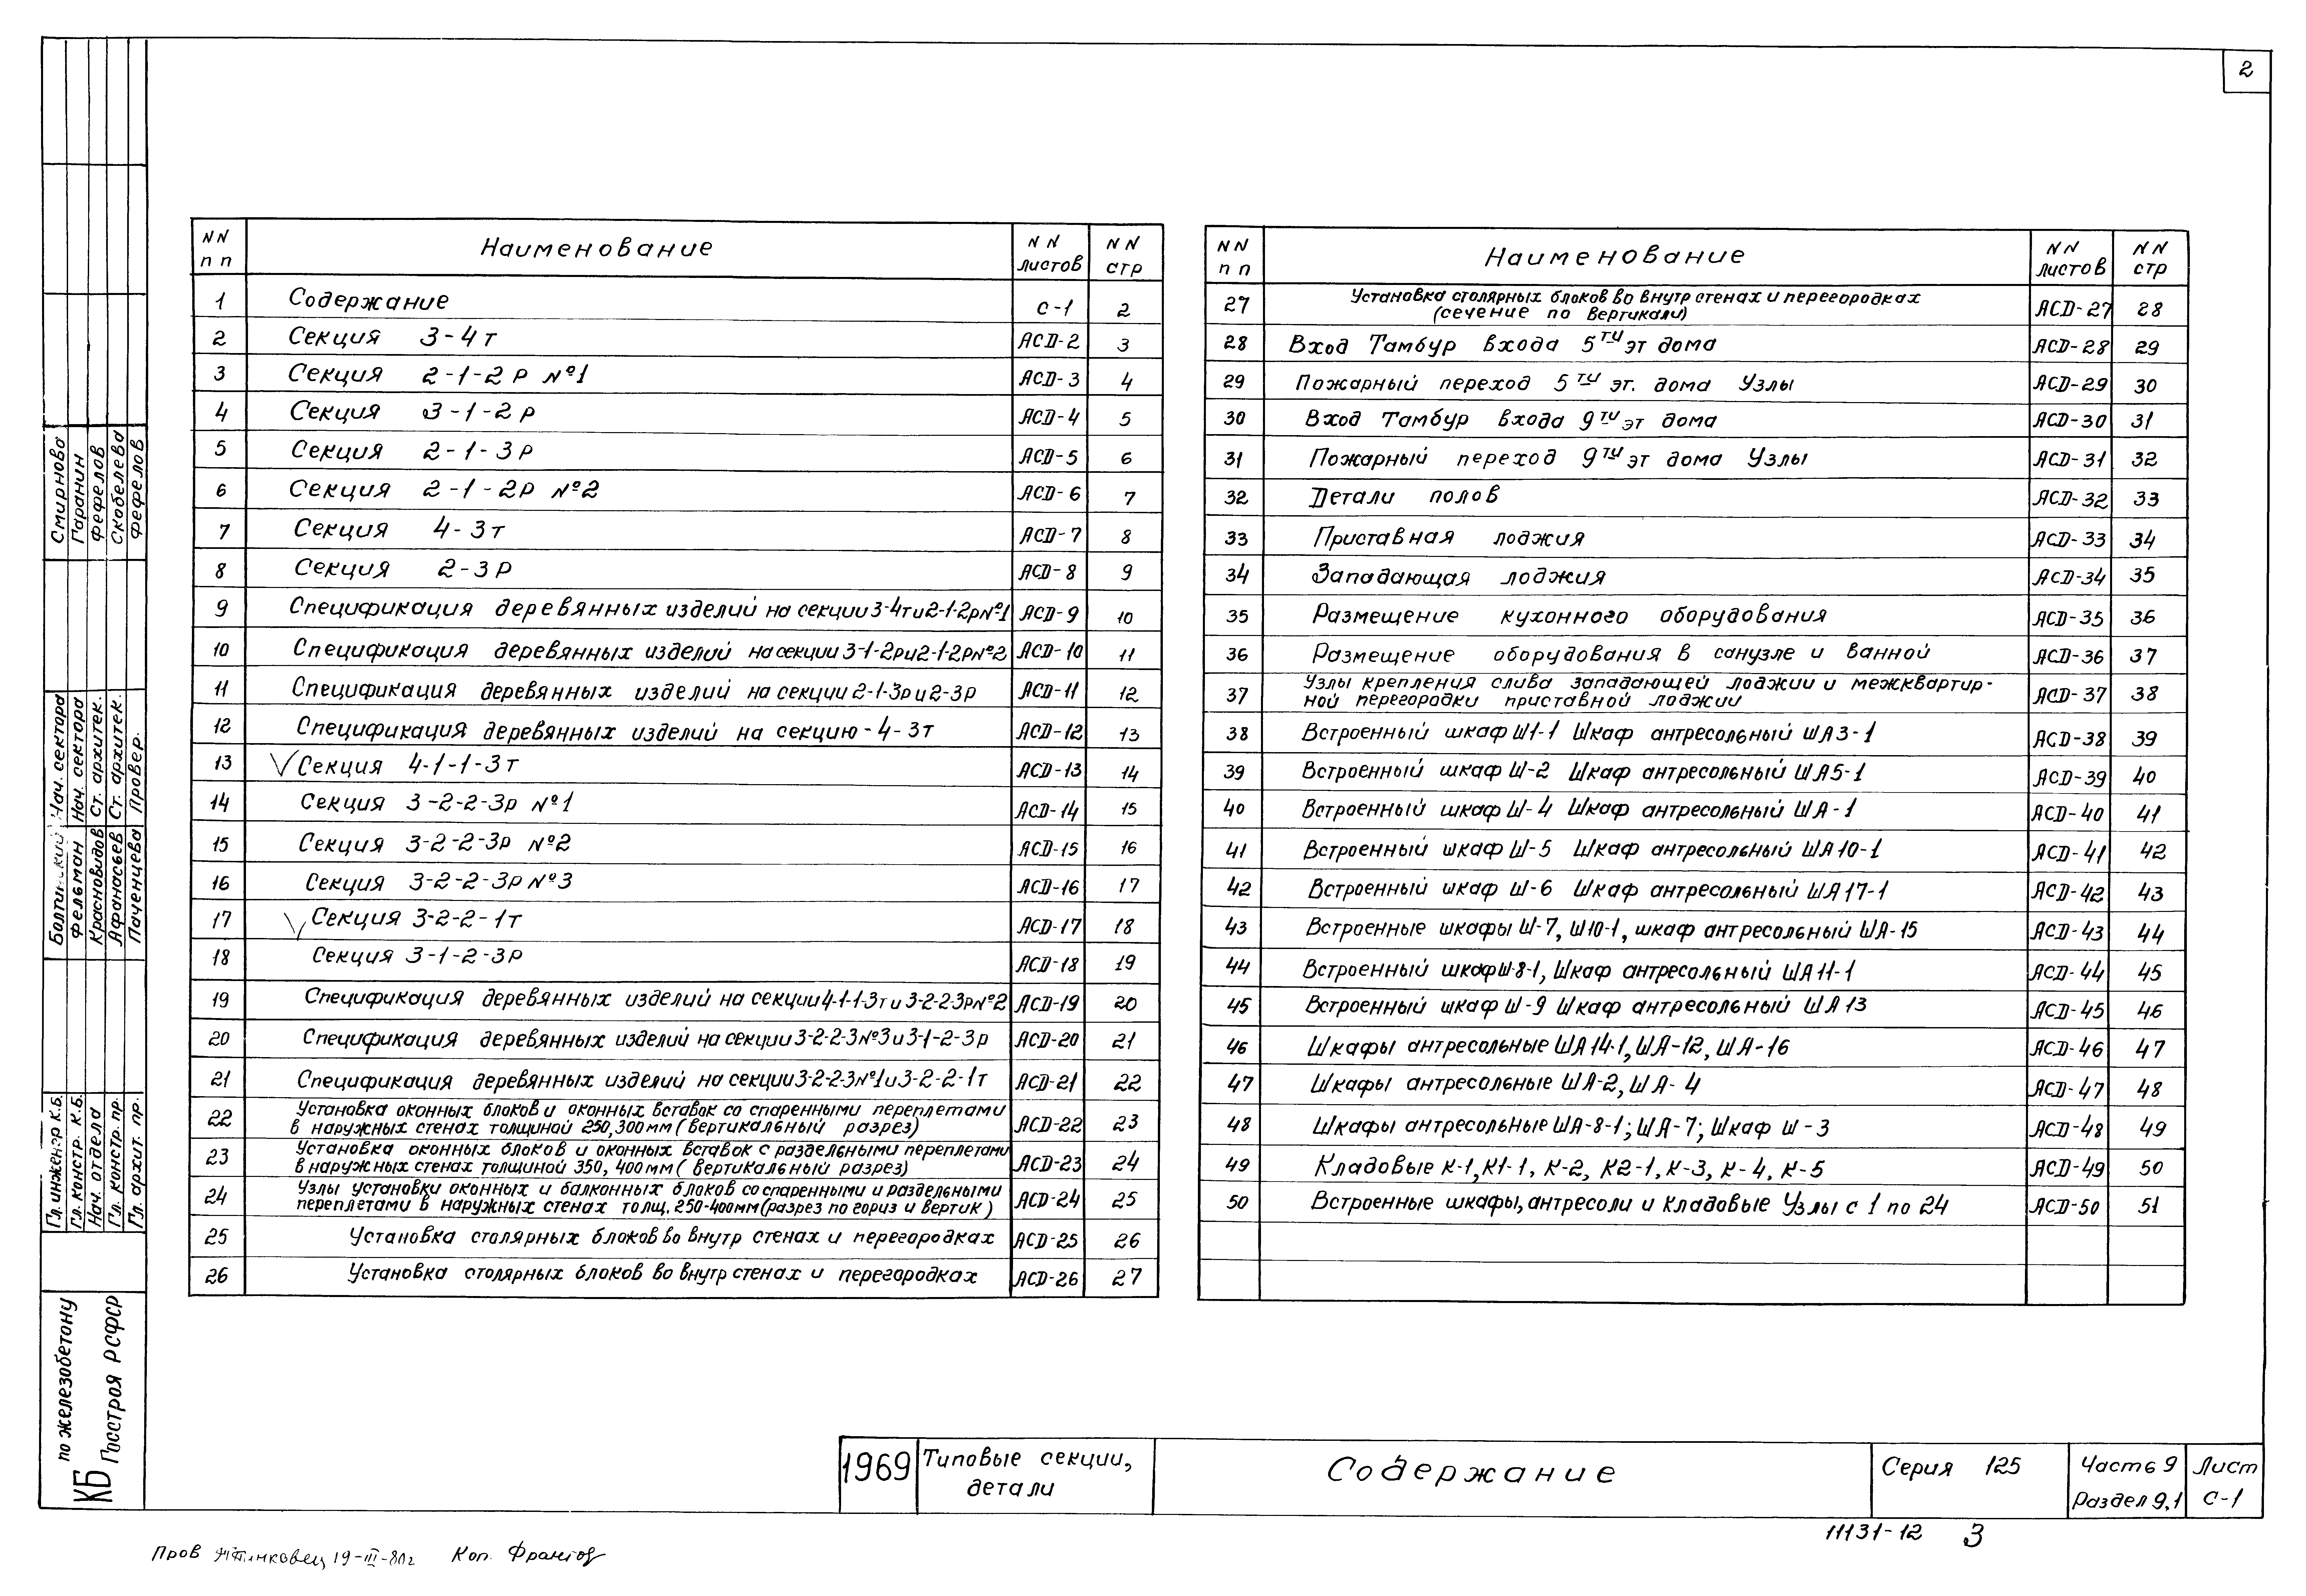 2
NN пп Наименование NN листов NN стр
1 Содержание С-1 2
2 Секция 3-4т АСД-2 3
3 Секция 2-1-2р №1 АСД-3 4
4 Секция 3-1-2р АСД-4 5
5 Секция 2-1-3р АСД-5 6
6 Секция 2-1-2р №2 АСД-6 7
7 Секция 4-3т АСД-7 8
8 Секция 2-3р АСД-8 9
9 Спецификация деревянных изделий на секции 3-4т и 2-1-2р №1 АСД-9 10
10 Спецификация деревянных изделий на секции 3-1-2р и 2-1-2р №2 АСД-10 11
11 Спецификация деревянных изделий на секции 2-1-3р и 2-3р АСД-11 12
12 Спецификация деревянных изделий на секцию-4-3т АСД-12 13
13 √ Секция 4-1-1-3т АСД-13 14
14 Секция 3-2-2-3р №1 АСД-14 15
15 Секция 3-2-2-3р №2 АСД-15 16
16 Секция 3-2-2-3р №3 АСД-16 17
17 √ Секция 3-2-2-1т АСД-17 18
18 Секция 3-1-2-3р АСД-18 19
19 Спецификация деревянных изделий на секции 4-1-1-3т и 3-2-2-3р №2 АСД-19 20
20 Спецификация деревянных изделий на секции 3-2-2-3 №3 и 3-1-2-3р АСД-20 21
21 Спецификация деревянных изделий на секции 3-2-2-3 №1 и 3-2-2-1т АСД-21 22
22 Установка оконных блоков и оконных вставок со спаренными переплетами
в наружных стенах толщиной 250,300мм (вертикальный разрез) АСД-22 23
23 Установка оконных блоков и оконных вставок с раздельными переплетами
в наружных стенах толщиной 350, 400мм (вертикальный разрез) АСД-23 24
24 Узлы установки оконных и балконных блоков со спаренными и раздельными
переплетами в наружных стенах толщ. 250-400мм (разрез по гориз и вертик) АСД-24 25
25 Установка столярных блоков во внутр стенах и перегородках АСД-25 26
26 Установка столярных блоков во внутр стенах и перегородках АСД-26 27
NN пп Наименование NN листов NN стр
27 Установка столярных блоков во внутр стенах и перегородках
(сечение по вертикали) АСД-27 28
28 Вход Тамбур входа 5ти эт дома АСД-28 29
29 Пожарный переход 5ти эт. дома Узлы АСД-29 30
30 Вход Тамбур входа 9ти эт дома АСД-30 31
31 Пожарный переход 9ти эт дома Узлы АСД-31 32
32 Детали полов АСД-32 33
33 Приставная лоджия АСД-33 34
34 Западающая лоджия АСД-34 35
35 Размещение кухонного оборудования АСД-35 36
36 Размещение оборудования в санузле и ванной АСД-36 37
37 Узлы крепления слива западающей лоджии и межквартир-
ной перегородки приставной лоджии АСД-37 38
38 Встроенный шкаф Ш1-1 Шкаф антресольный ША3-1 АСД-38 39
39 Встроенный шкаф Ш-2 Шкаф антресольный ША5-1 АСД-39 40
40 Встроенный шкаф Ш-4 Шкаф антресольный ША-1 АСД-40 41
41 Встроенный шкаф Ш-5 Шкаф антресольный ША10-1 АСД-41 42
42 Встроенный шкаф Ш-6 Шкаф антресольный ША17-1 АСД-42 43
43 Встроенные шкафы Ш-7, Ш10-1, шкаф антресольный ША-15 АСД-43 44
44 Встроенный шкаф Ш-8-1, Шкаф антресольный ША11-1 АСД-44 45
45 Встроенный шкаф Ш-9 Шкаф антресольный ША13 АСД-45 46
46 Шкафы антресольные ША14-1, ША-12, ША-16 АСД-46 47
47 Шкафы антресольные ША-2, ША-4 АСД-47 48
48 Шкафы антресольные ША-8-1; ША-7; Шкаф Ш-3 АСД-48 49
49 Кладовые К-1, К1-1, К-2, К2-1, К-3, К-4, К-5 АСД-49 50
50 Встроенные шкафы, антресоли и кладовые Узлы с 1 по 24 АСД-50 51
Смирнова
Гаранин
Фефелов
Скобелева
Фефелов
Нач. сектора
Нач. сектора
Ст. архитек.
Ст. архитек.
Провер.
Фельман
Красновидов
Афанасьев
Паченцева
Гл. инженер К.Б.
Гл. констр. К.Б.
Нач. отдела
Гл. констр. пр.
Гл. архит. пр.
КБ по железобетону
Госстроя РСФСР
1969 Типовые секции,
детали
Содержание
Серия 125
Часть 9
Раздел 9.1
Лист
С-1
11131-12 3
Пров 19-III-80г Коп.